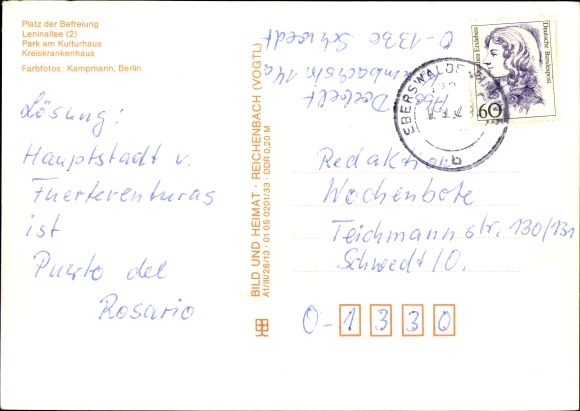 Platz der Befreiung
Leninallee (2)
Park am Kulturhaus
Kreiskrankenhaus
Farbfotos: Kampmann, Berlin
Lösung:
Hauptstadt v.
Fuerteventuras
ist
Puerto del
Rosario
BILD UND HEIMAT · REICHENBACH (VOGTL)
A1/III/26/13 · 01 05 0201/33 · DDR 0,20 M
Abs.
14a
O-1330 Schwedt
Dorothea Erxleben
Deutsche Bundespost
60
EBERSWALDE
b
Redaktion
Wochenbote
Teichmannstr. 130/131
Schwedt/O.
O-1330